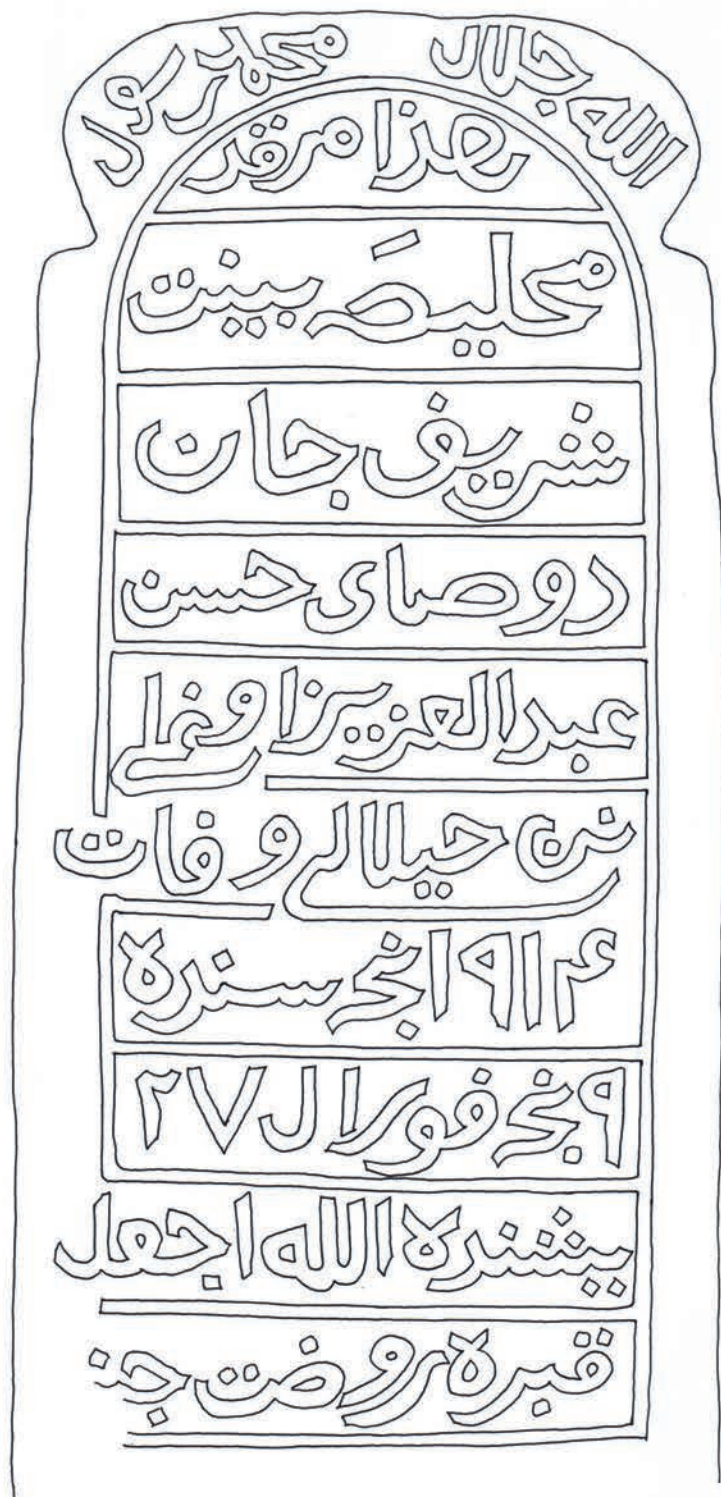 الله جلال محمد رسول
هزا مرقد
محليصَه بينت
شريف جان
دوصاى حسن
عبد العزيز اوغلى
نن حيلالى وفات
۱۹۱۴ انجى سنده
۹ نجى فورال ۲۷
يشنده الله اجعل
قبره روضت جنـ